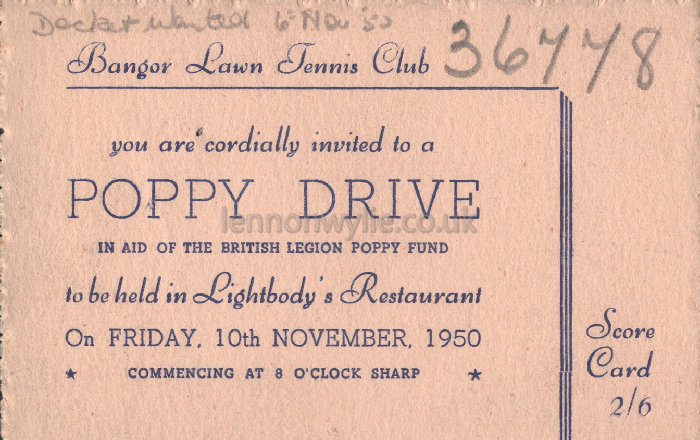 Docket wanted 6 Nov '50
36778
Bangor Lawn Tennis Club
you are cordially invited to a
POPPY DRIVE
lennonwylie.co.uk
IN AID OF THE BRITISH LEGION POPPY FUND
to be held in Lightbody's Restaurant
On FRIDAY, 10th NOVEMBER, 1950
★ COMMENCING AT 8 O'CLOCK SHARP ★
Score
Card
2/6